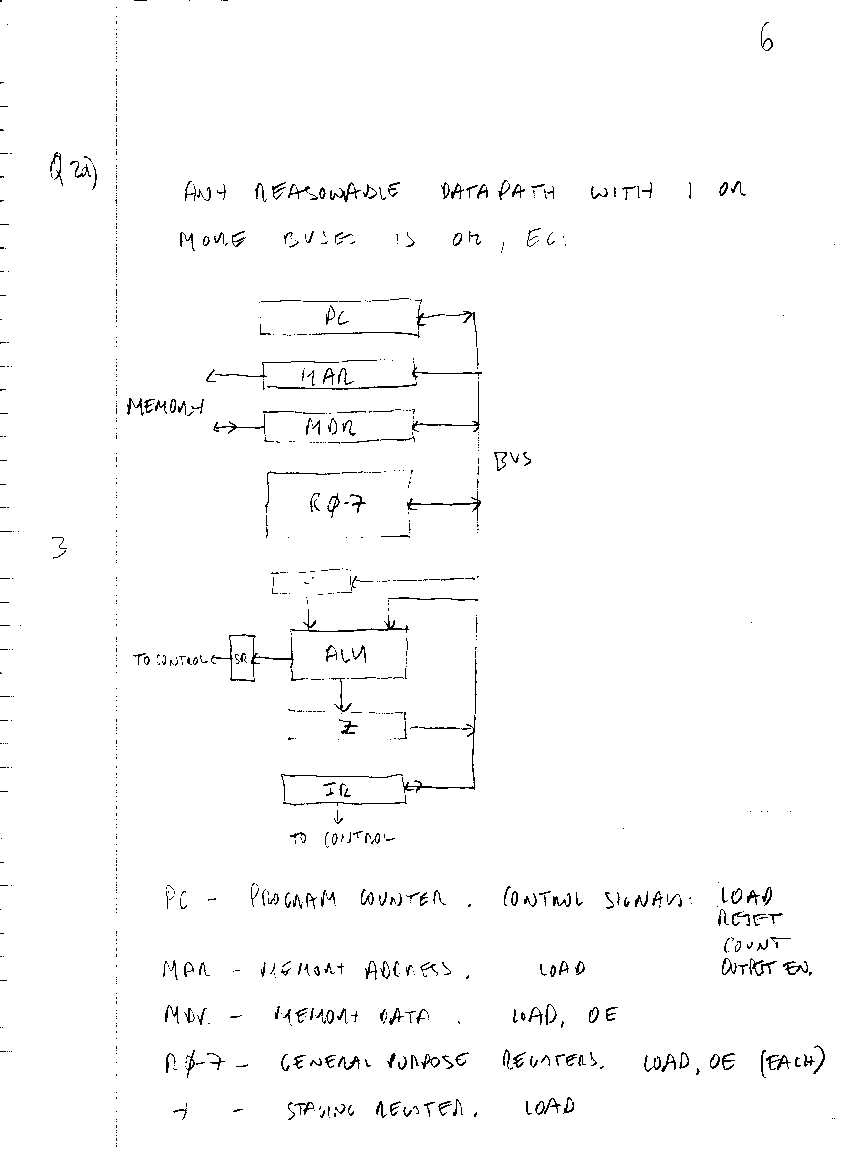 6
Q 2a)
ANY REASONABLE DATAPATH WITH 1 OR
MORE BUSES IS OK, EG:
PC
MAR
MEMORY
MDR
BUS
R0-7
3
TO CONTROL
SR
ALU
Z
IR
TO CONTROL
PC - PROGRAM COUNTER. CONTROL SIGNALS: LOAD
RESET
COUNT
OUTPUT EN.
MAR - MEMORY ADDRESS. LOAD
MDR - MEMORY DATA. LOAD, OE
R0-7 - GENERAL PURPOSE REGISTERS. LOAD, OE (EACH)
Y - STAGING REGISTER. LOAD